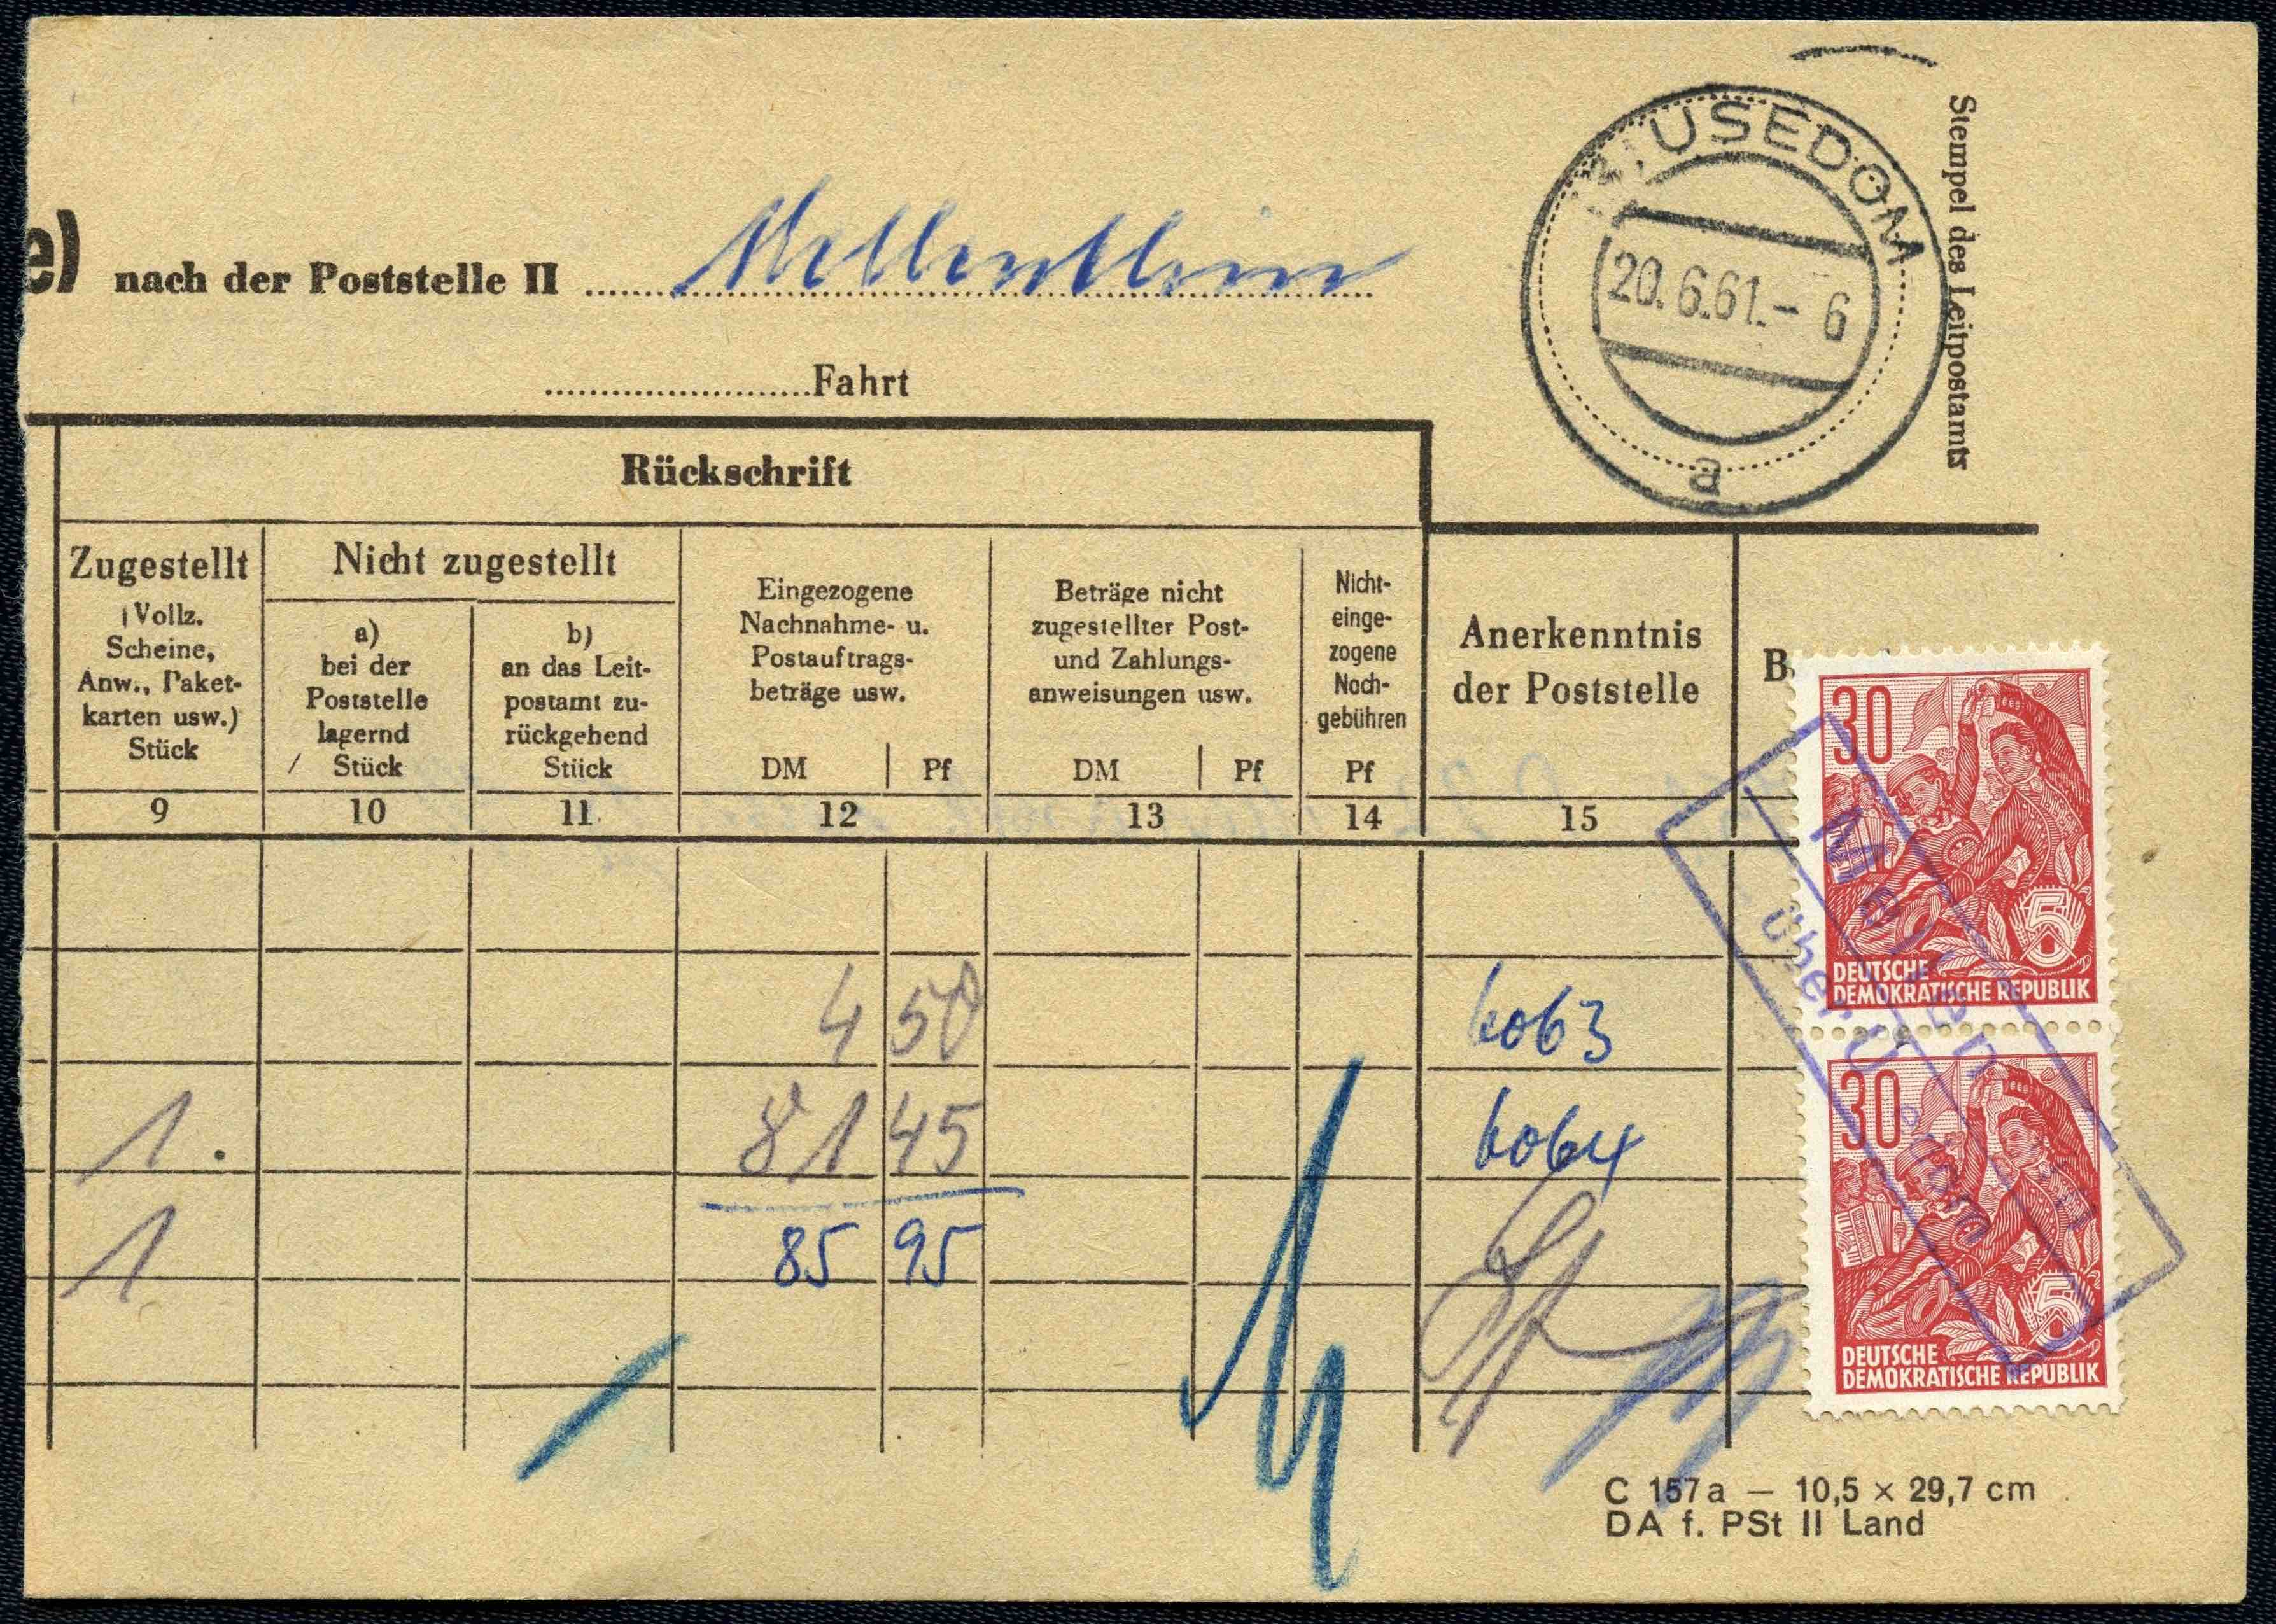 USEDOM
20.6.61.- 6
a
Stempel des Leitpostamts
e) nach der Poststelle II Mellenthin
Fahrt
Rückschrift
Zugestellt
(Vollz.
Scheine,
Anw., Paket-
karten usw.)
Stück
Nicht zugestellt
a)
bei der
Poststelle
lagernd
Stück
b)
an das Leit-
postamt zu-
rückgehend
Stück
Eingezogene
Nachnahme- u.
Postauftrags-
beträge usw.
DM Pf
Beträge nicht
zugestellter Post-
und Zahlungs-
anweisungen usw.
DM Pf
Nicht-
einge-
zogene
Nach-
gebühren
Pf
Anerkenntnis
der Poststelle
B
9 10 11 12 13 14 15
4 50
1. 81 45
1 85 95
30
DEUTSCHE
DEMOKRATISCHE REPUBLIK
5
30
DEUTSCHE
DEMOKRATISCHE REPUBLIK
5
über
C 157a — 10,5 × 29,7 cm
DA f. PSt II Land